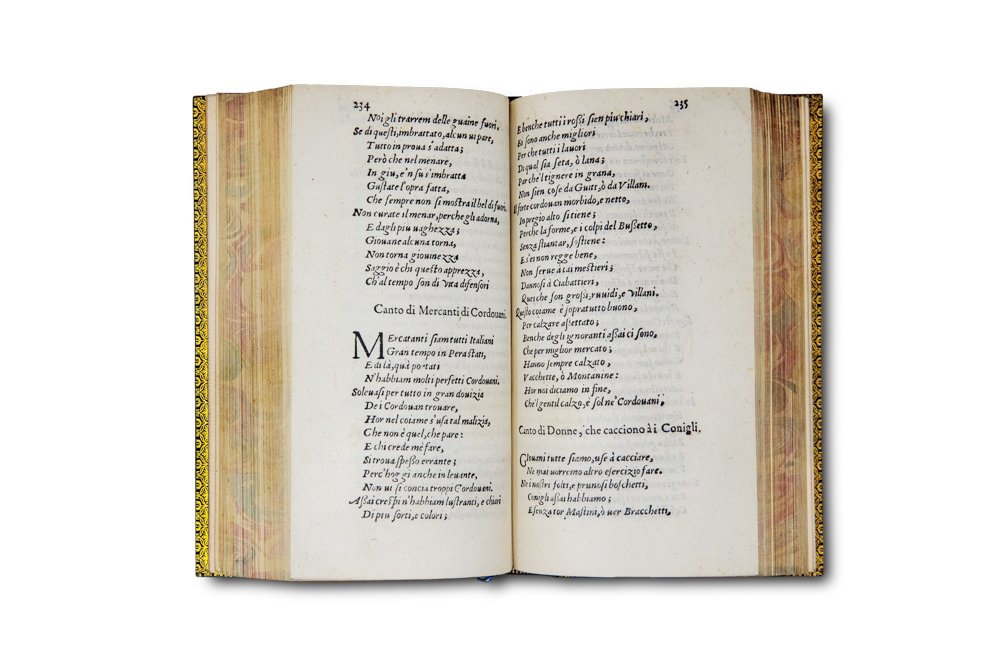 234
Noi gli trarrem delle guaine fuori.
Se di questi, imbrattato, alcun vi pare,
Tutto in prova s'adatta;
Però che nel menare,
In giu, e'n su s'imbratta
Gustate l'opra fatta,
Che sempre non si mostra il bel di fuori,
Non curate il menar, perche gli adorna,
E dagli piu vaghezza;
Giovane alcuna torna,
Non torna giovinezza
Saggio è chi questo apprezza,
Ch'al tempo son di vita difensori
Canto di Mercanti di Cordouani.
MErcatanti siam tutti Italiani
Gran tempo in Pera stati,
E di là, quà portati
N'habbiam molti perfetti Cordouani.
Soleuasi per tutto in gran douizia
De i Cordouan trouare,
Hor nel coiame s'usa tal malizia,
Che non è quel, che pare:
E chi crede me' fare,
Si troua spesso errante;
Perc'hoggi anche in leuante.
Non vi si concia troppi Cordouani.
Assai crespi n'habbiam lustranti, e chiari
Di piu sorti, e colori;
235
E benche tutti i rossi sien piu chiari,
Ei sono anche migliori
Per che tutti i lauori
Di qual sia seta, ò lana;
Par che'l tignere in grana,
Non sien cose da Guitt, ò da Villani.
Il forte cordouan morbido, e netto,
In pregio alto si tiene;
Perche la forme, e i colpi del Bussetto,
Senza stiantar, sostiene:
E s'ei non regge bene,
Non serue à tai mestieri;
Dannosi à Ciabattieri,
Quei che son grossi, ruuidi, e Villani.
Questo coiame è sopratutto buono,
Per calzare assettato;
Benche degli ignoranti assai ci sono,
Che per miglior mercato;
Hanno sempre calzato,
Vacchette, ò Montanine:
Hor noi diciamo in fine,
Che'l gentil calzo, è sol ne' Cordouani,
Canto di Donne, che cacciono à i Conigli.
GIouani tutte siamo, use à cacciare,
Ne mai vorremo altro esercizio fare.
Ne i nostri folti, e prunosi boschetti,
Conigli assai habbiamo;
E senza tor Mastini, ò ver Bracchetti,